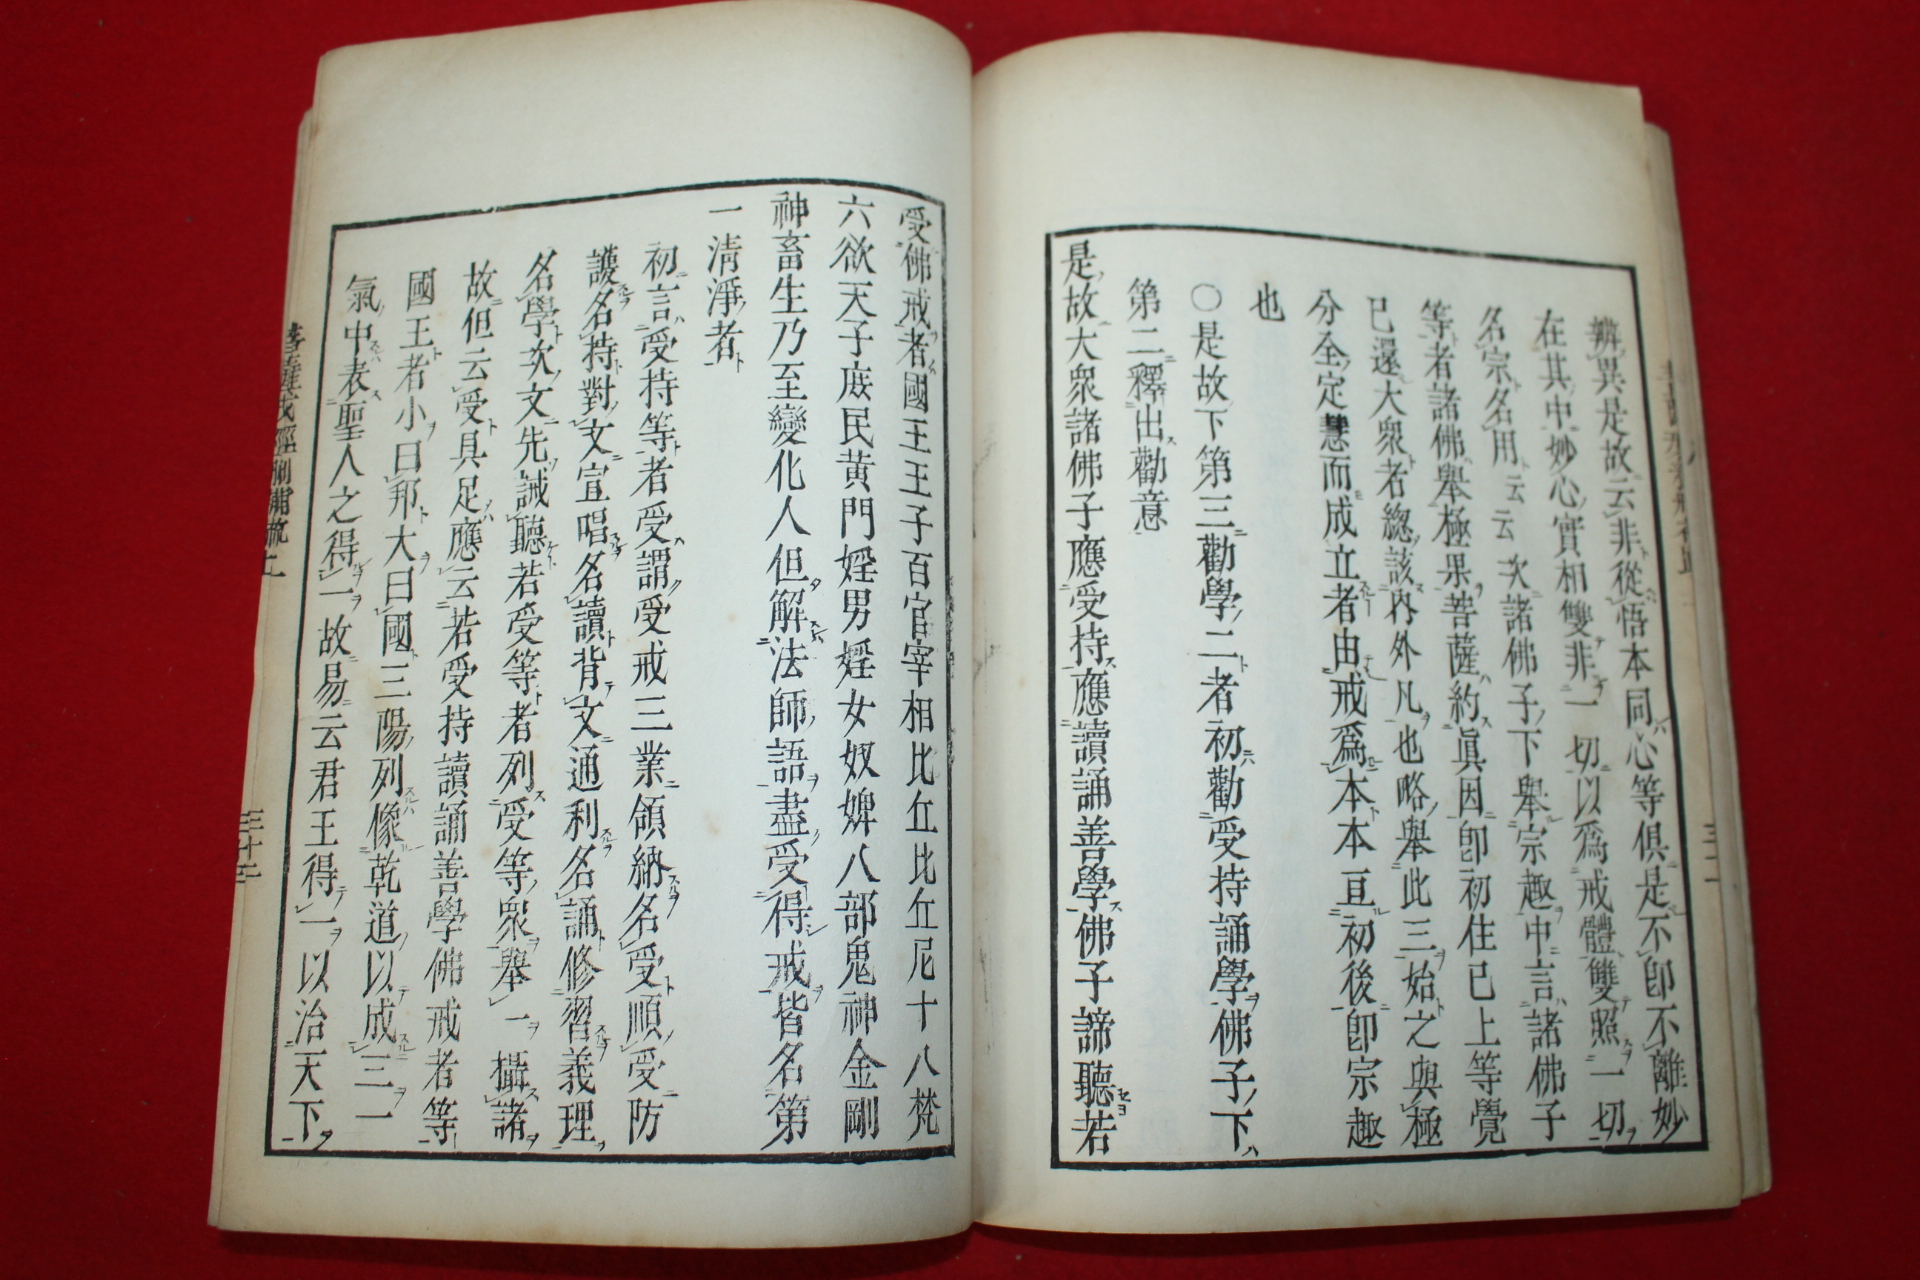 辨異是故云非從悟本同心等俱是不卽不離妙
在其中妙心實相雙非一切以爲戒體雙照一切
名宗名用云云次諸佛子下舉宗趣中言諸佛子
等者諸佛舉極果菩薩約眞因卽初住已上等覺
已還大衆者總該內外凡也略舉此三始之與極
分全定慧而成立者由戒爲本本亘初後卽宗趣
也
○是故下第三勸學二者初勸受持誦學佛子下
第二釋出勸意
是故大衆諸佛子應受持應讀誦善學佛子諦聽若
受佛戒者國王王子百官宰相比丘比丘尼十八梵
六欲天子庶民黃門婬男婬女奴婢八部鬼神金剛
神畜生乃至變化人但解法師語盡受得戒皆名第
一清淨者
初言受持等者受謂受戒三業領納名受順受防
護名持對文宣唱名讀背文通利名誦修習義理
名學次文先誡聽若受等者列受等衆舉一攝諸
故但云受具足應云若受持讀誦善學佛戒者等
國王者小曰邦大曰國三陽列像乾道以成三一
氣中表聖人之得一故易云君王得一以治天下
三十二